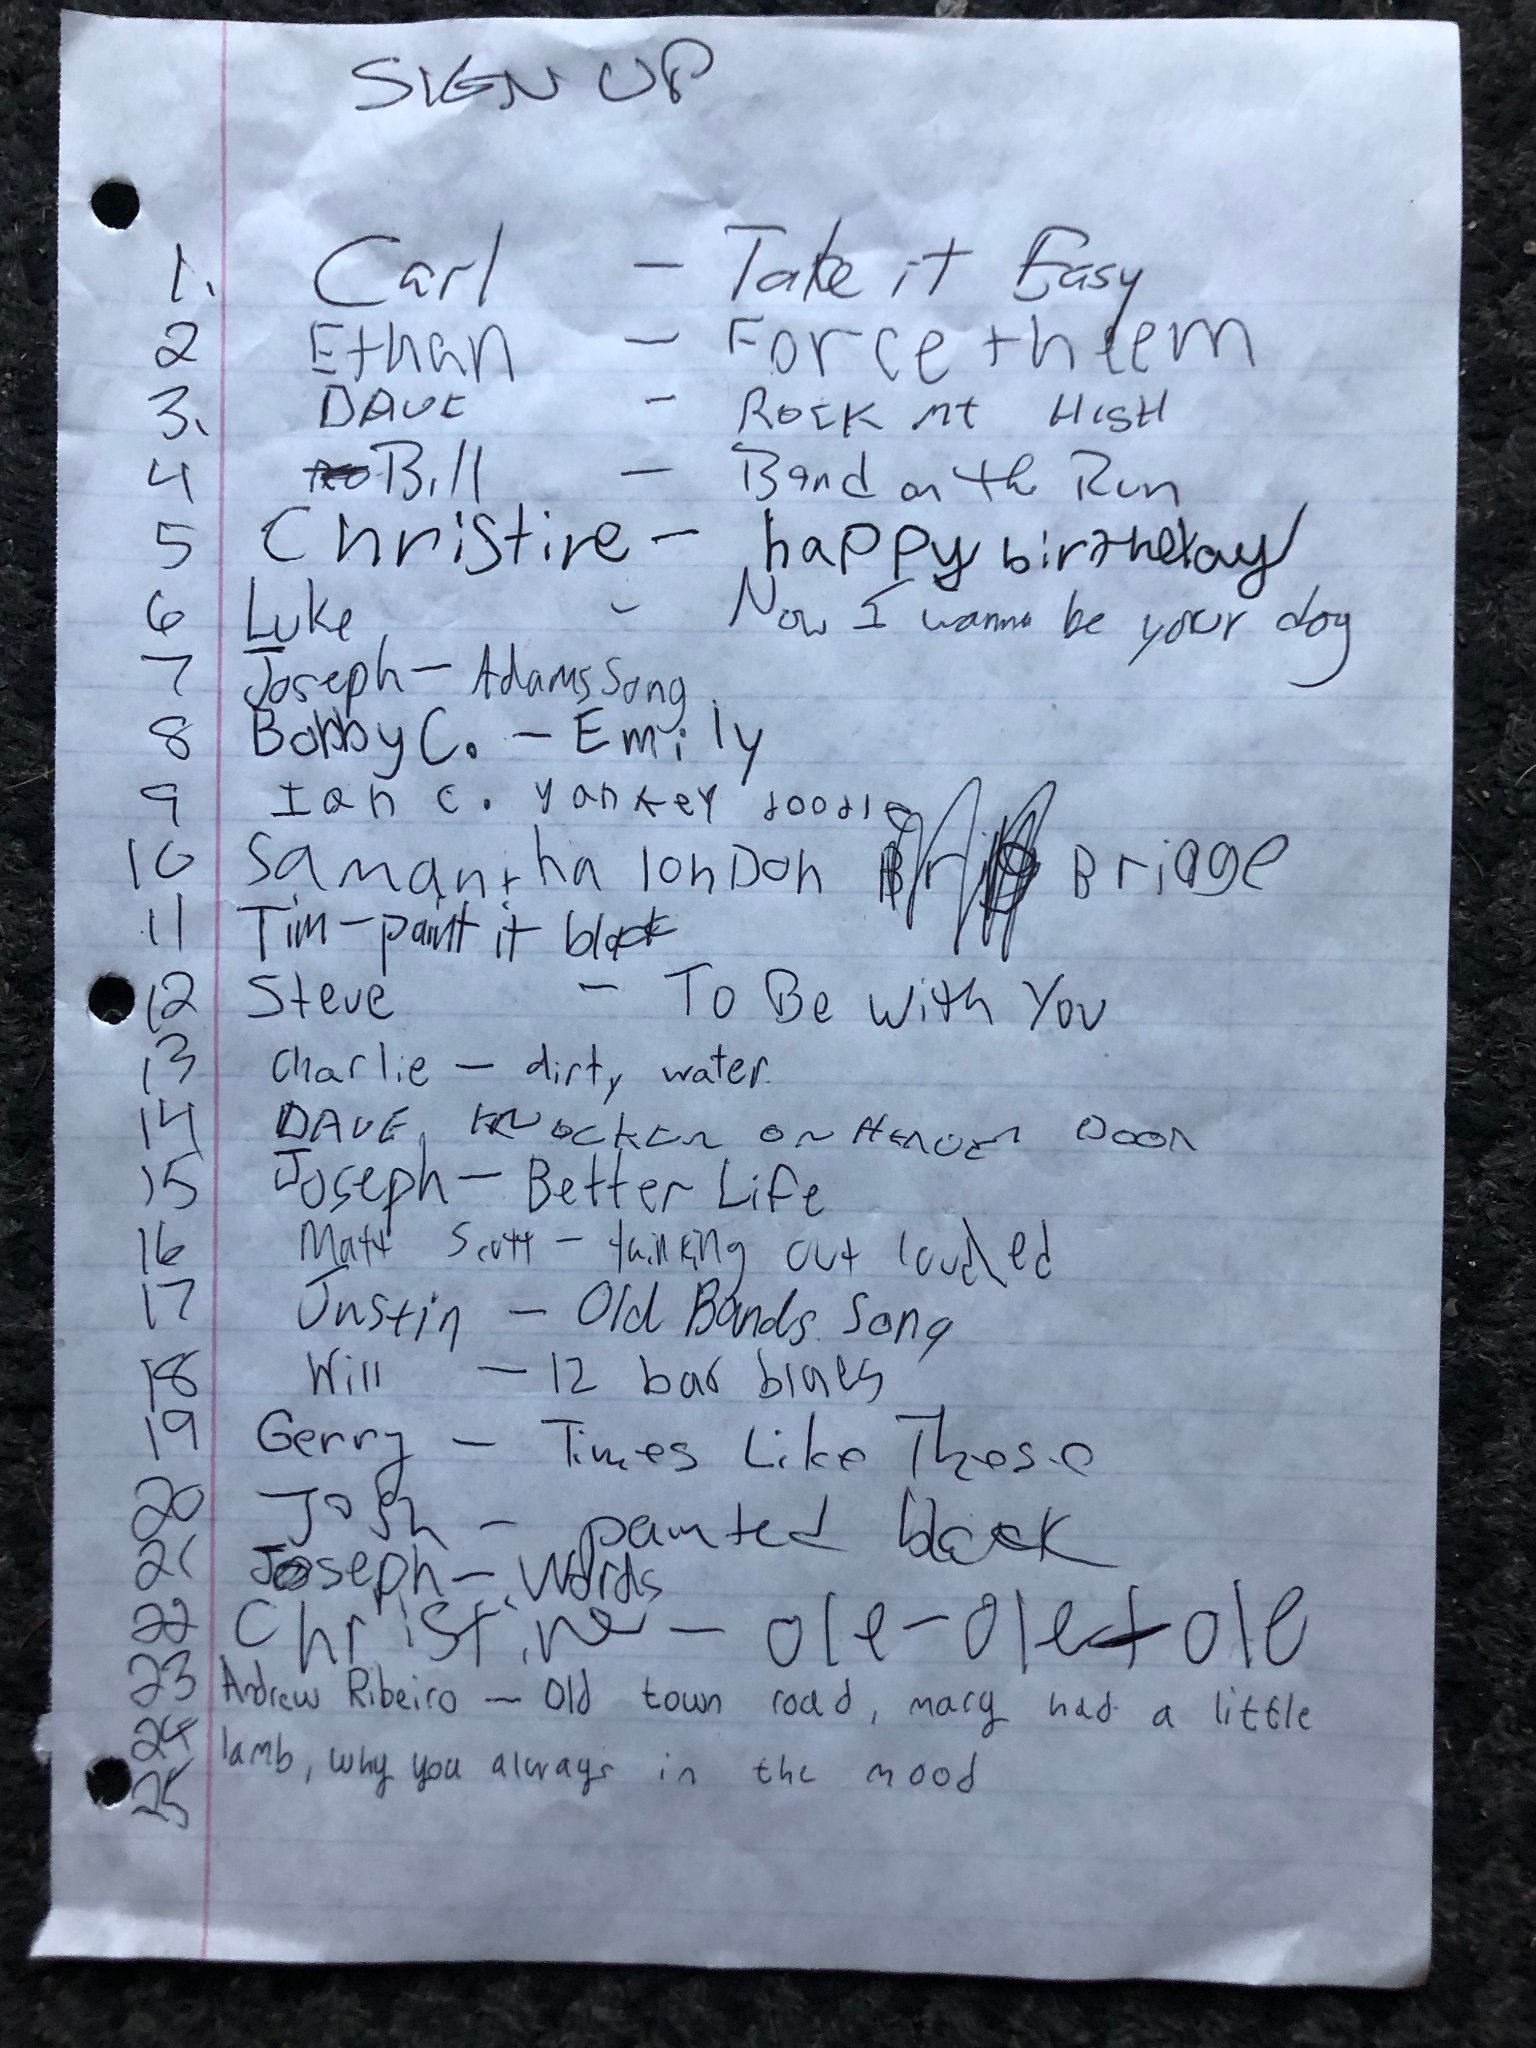 SIGN UP
1. Carl - Take it Easy
2 Ethan - Force them
3. DAVE - ROCK MT HIGH
4 Bill - Band on the Run
5 Christine - happy birthday
6 Luke - Now I wanna be your dog
7 Joseph - Adams Song
8 Bobby C. - Emily
9 Ian C. yankey doodle
10 Samantha lonDon Bridge
11 Tim - paint it black
12 Steve - To Be With You
13 Charlie - dirty water
14 DAVE, KNOCKEN ON HEAVEN DOOR
15 Joseph - Better Life
16 Matt Scott - thinking out loud\ed
17 Justin - Old Bands Song
18 Will - 12 bar blues
19 Gerry - Times Like These
20 Josh - painted black
21 Joseph - Words
22 Christine - ole-ole-ole
23 Andrew Ribeiro - Old town road, mary had a little
24 lamb, why you always in the mood
25